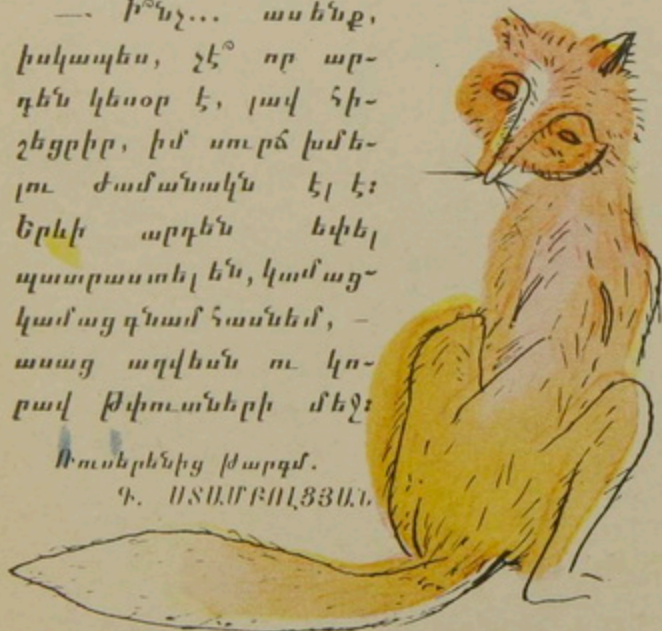 — Ի՞նչ... ասենք,
իսկապես, չէ՞ որ ար-
դեն կեսօր է, լավ հի-
շեցրիր, իմ սուրճ խմե-
լու ժամանակն էլ է։
Երևի արդեն եփել
պատրաստել են, կամաց-
կամաց գնամ հասնեմ, —
ասաց աղվեսն ու կո-
րավ թփուտների մեջ։
Ռուսերենից թարգմ.
Գ. ՍՏԱՄԲՈԼՑՅԱՆ